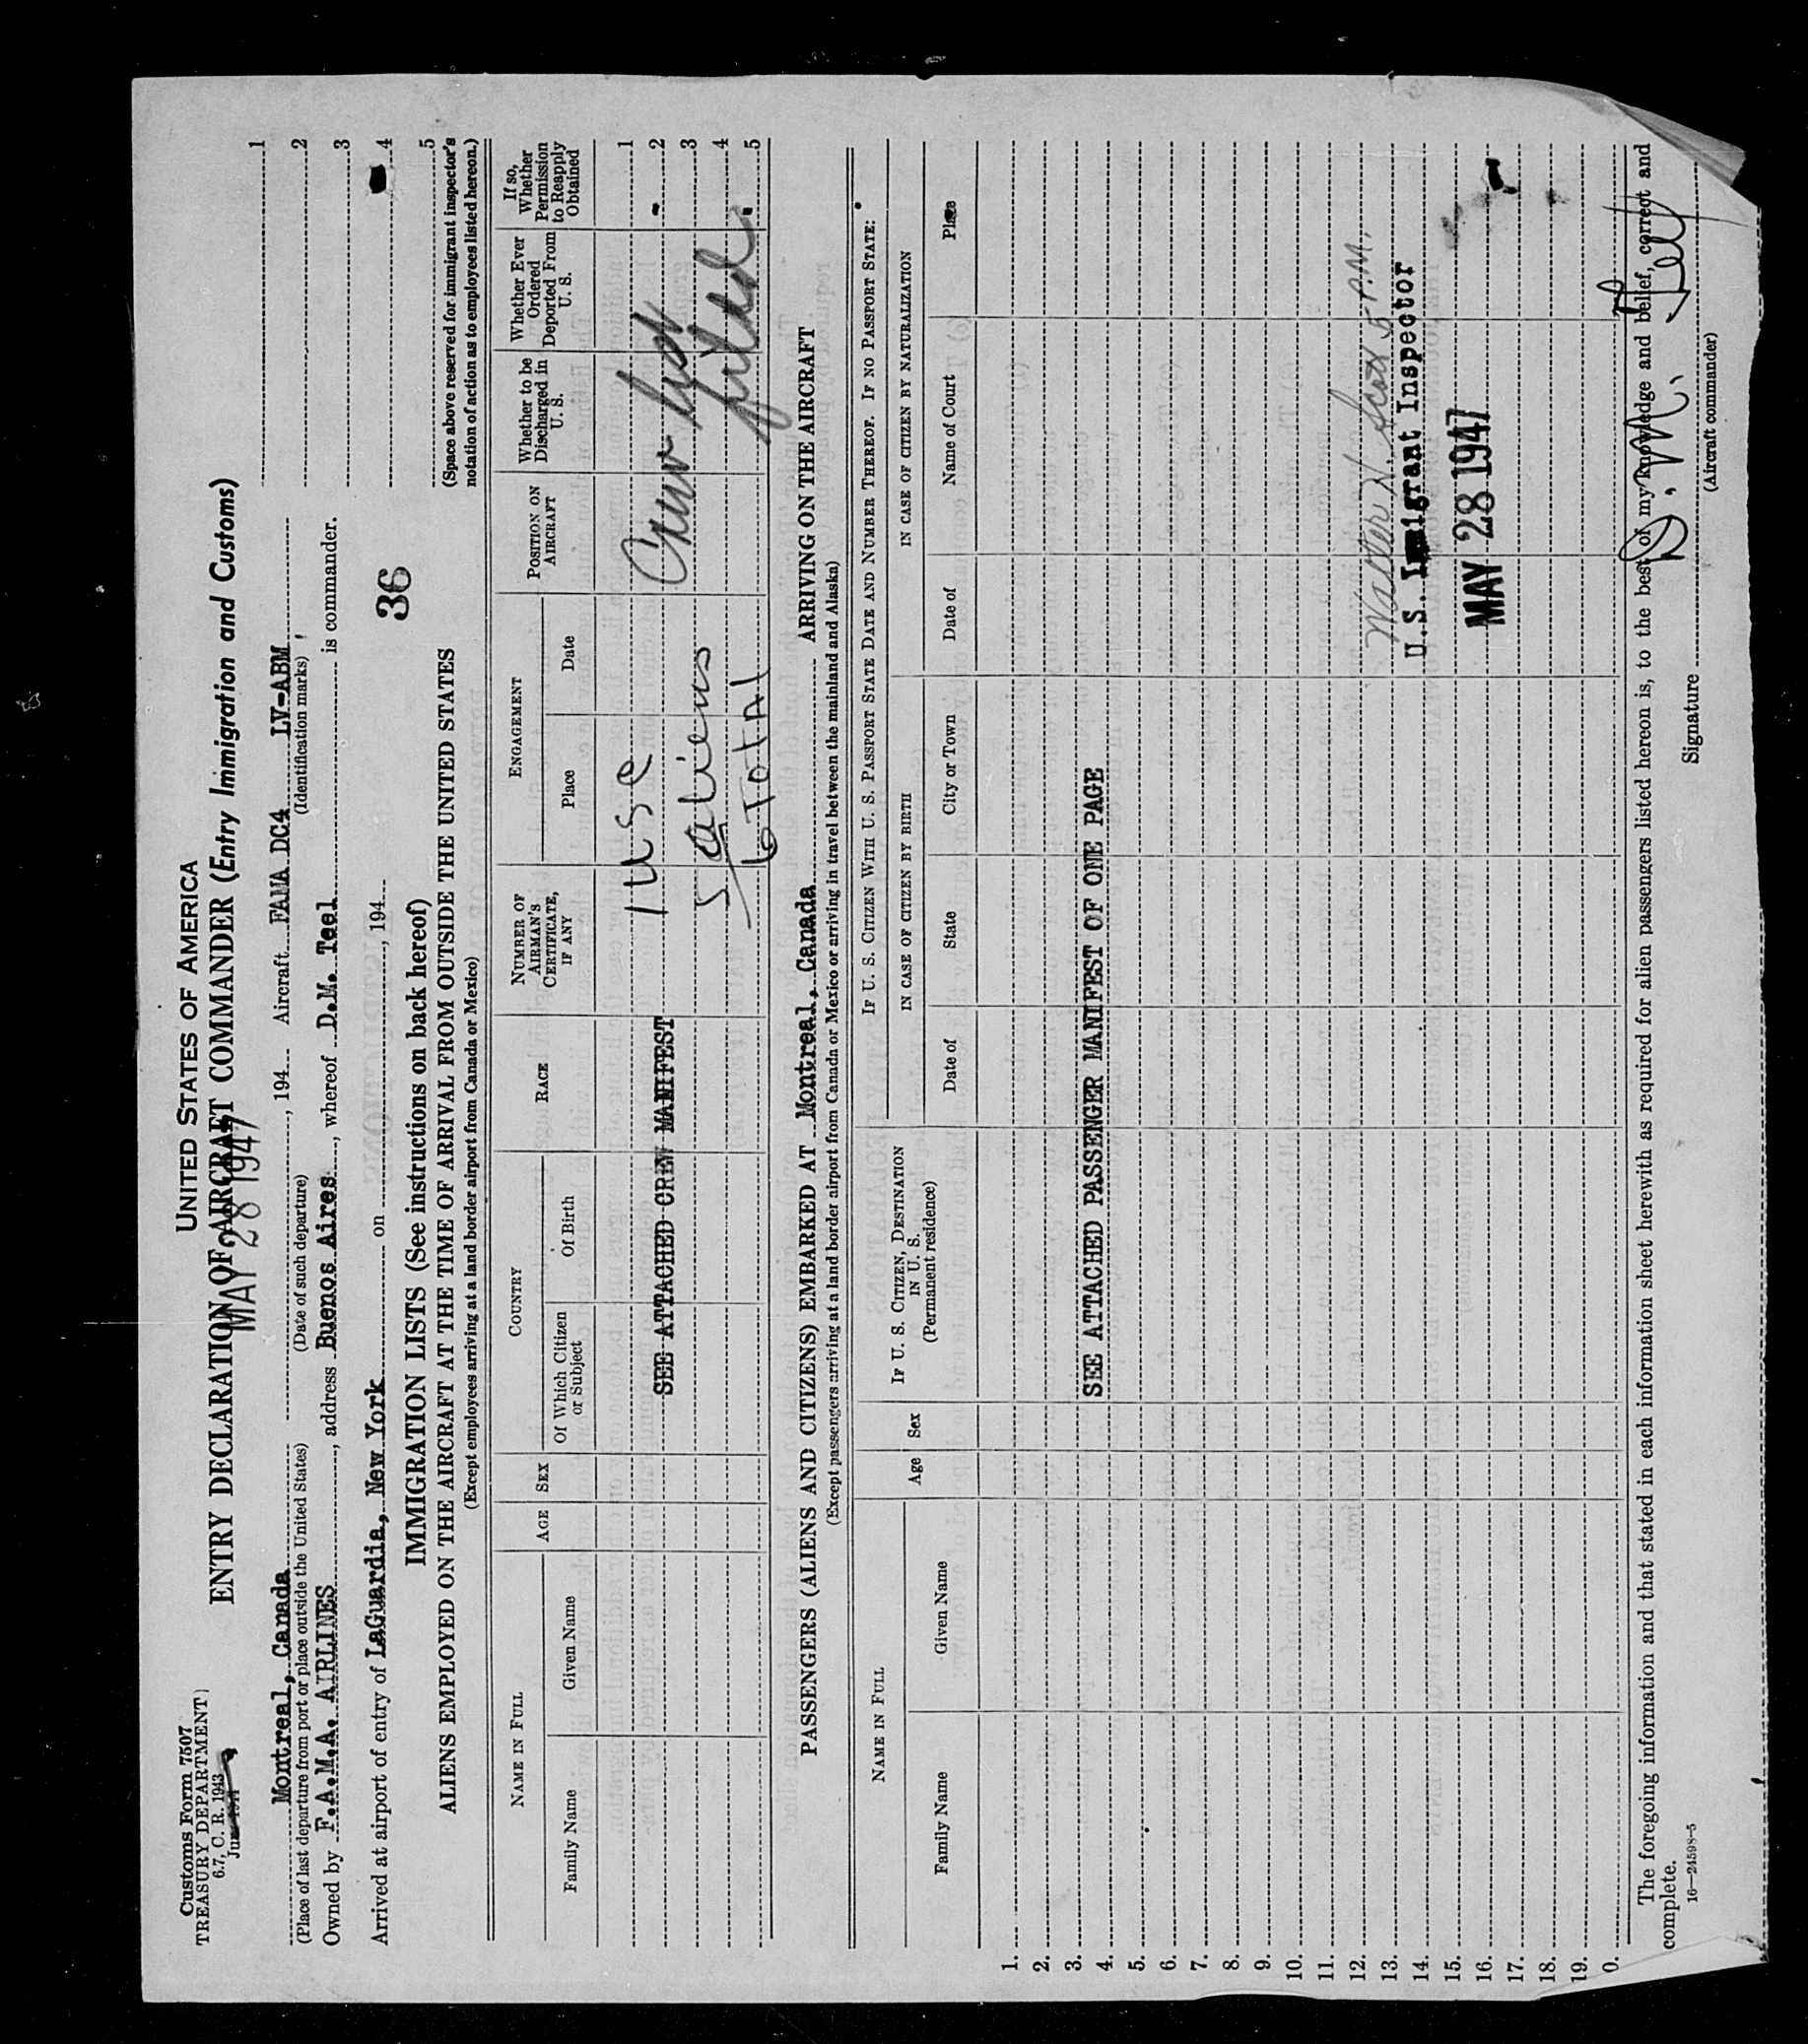 Customs Form 7507
TREASURY DEPARTMENT
6.7, C. R. 1943
UNITED STATES OF AMERICA
ENTRY DECLARATION OF AIRCRAFT COMMANDER (Entry Immigration and Customs)
MAY 28 1947
Montreal, Canada , 194 Aircraft FAMA DC4 LV-ABM
(Place of last departure from port or place outside the United States) (Date of such departure) (Identification marks)
Owned by F.A.M.A. AIRLINES, address Buenos Aires, whereof D.M. Teel is commander.
Arrived at airport of entry of LaGuardia, New York on , 194
36
1
2
3
4
5
(Space above reserved for immigrant inspector's
notation of action as to employees listed hereon.)
IMMIGRATION LISTS (See instructions on back hereof)
ALIENS EMPLOYED ON THE AIRCRAFT AT THE TIME OF ARRIVAL FROM OUTSIDE THE UNITED STATES
(Except employees arriving at a land border airport from Canada or Mexico)
NAME IN FULL
Family Name Given Name
AGE
SEX
COUNTRY
Of Which Citizen or Subject Of Birth
RACE
NUMBER OF AIRMAN'S CERTIFICATE, IF ANY
ENGAGEMENT
Place Date
POSITION ON AIRCRAFT
Whether to be Discharged in U. S.
Whether Ever Ordered Deported From U. S.
If so, Whether Permission to Reapply Obtained
1
2
3
4
5
SEE ATTACHED CREW MANIFEST
1 USC
5 aliens
6 TOTAL
Crew list
filed.
PASSENGERS (ALIENS AND CITIZENS) EMBARKED AT Montreal, Canada ARRIVING ON THE AIRCRAFT
(Except passengers arriving at a land border airport from Canada or Mexico or arriving in travel between the mainland and Alaska)
NAME IN FULL
Family Name Given Name
Age Sex
IF U. S. CITIZEN, DESTINATION IN U. S.
(Permanent residence)
IF U. S. CITIZEN WITH U. S. PASSPORT STATE DATE AND NUMBER THEREOF. IF NO PASSPORT STATE:
IN CASE OF CITIZEN BY BIRTH IN CASE OF CITIZEN BY NATURALIZATION
Date of State City or Town Date of Name of Court Place
1.
2.
3.
4.
SEE ATTACHED PASSENGER MANIFEST OF ONE PAGE
5.
6.
7.
8.
9.
10.
11.
12.
13.
14.
15.
16.
17.
18.
19.
0.
Walter H. Scott 5 P.M.
U.S. Immigrant Inspector
MAY 28 1947
The foregoing information and that stated in each information sheet herewith as required for alien passengers listed hereon is, to the best of my knowledge and belief, correct and
complete.
16—24598-5
Signature D. M. Teel
(Aircraft commander)